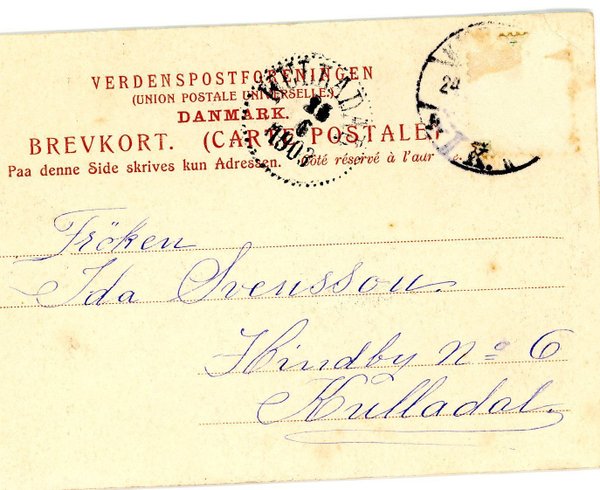 VERDENSPOSTFORENINGEN
(UNION POSTALE UNIVERSELLE.)
DANMARK.
BREVKORT. (CARTE POSTALE)
Paa denne Side skrives kun Adressen. Côté réservé à l'aur
KULLADAL
25
6
1903
24
K.
Fröken
Ida Svensson.
Hindby No 6
Kulladal.